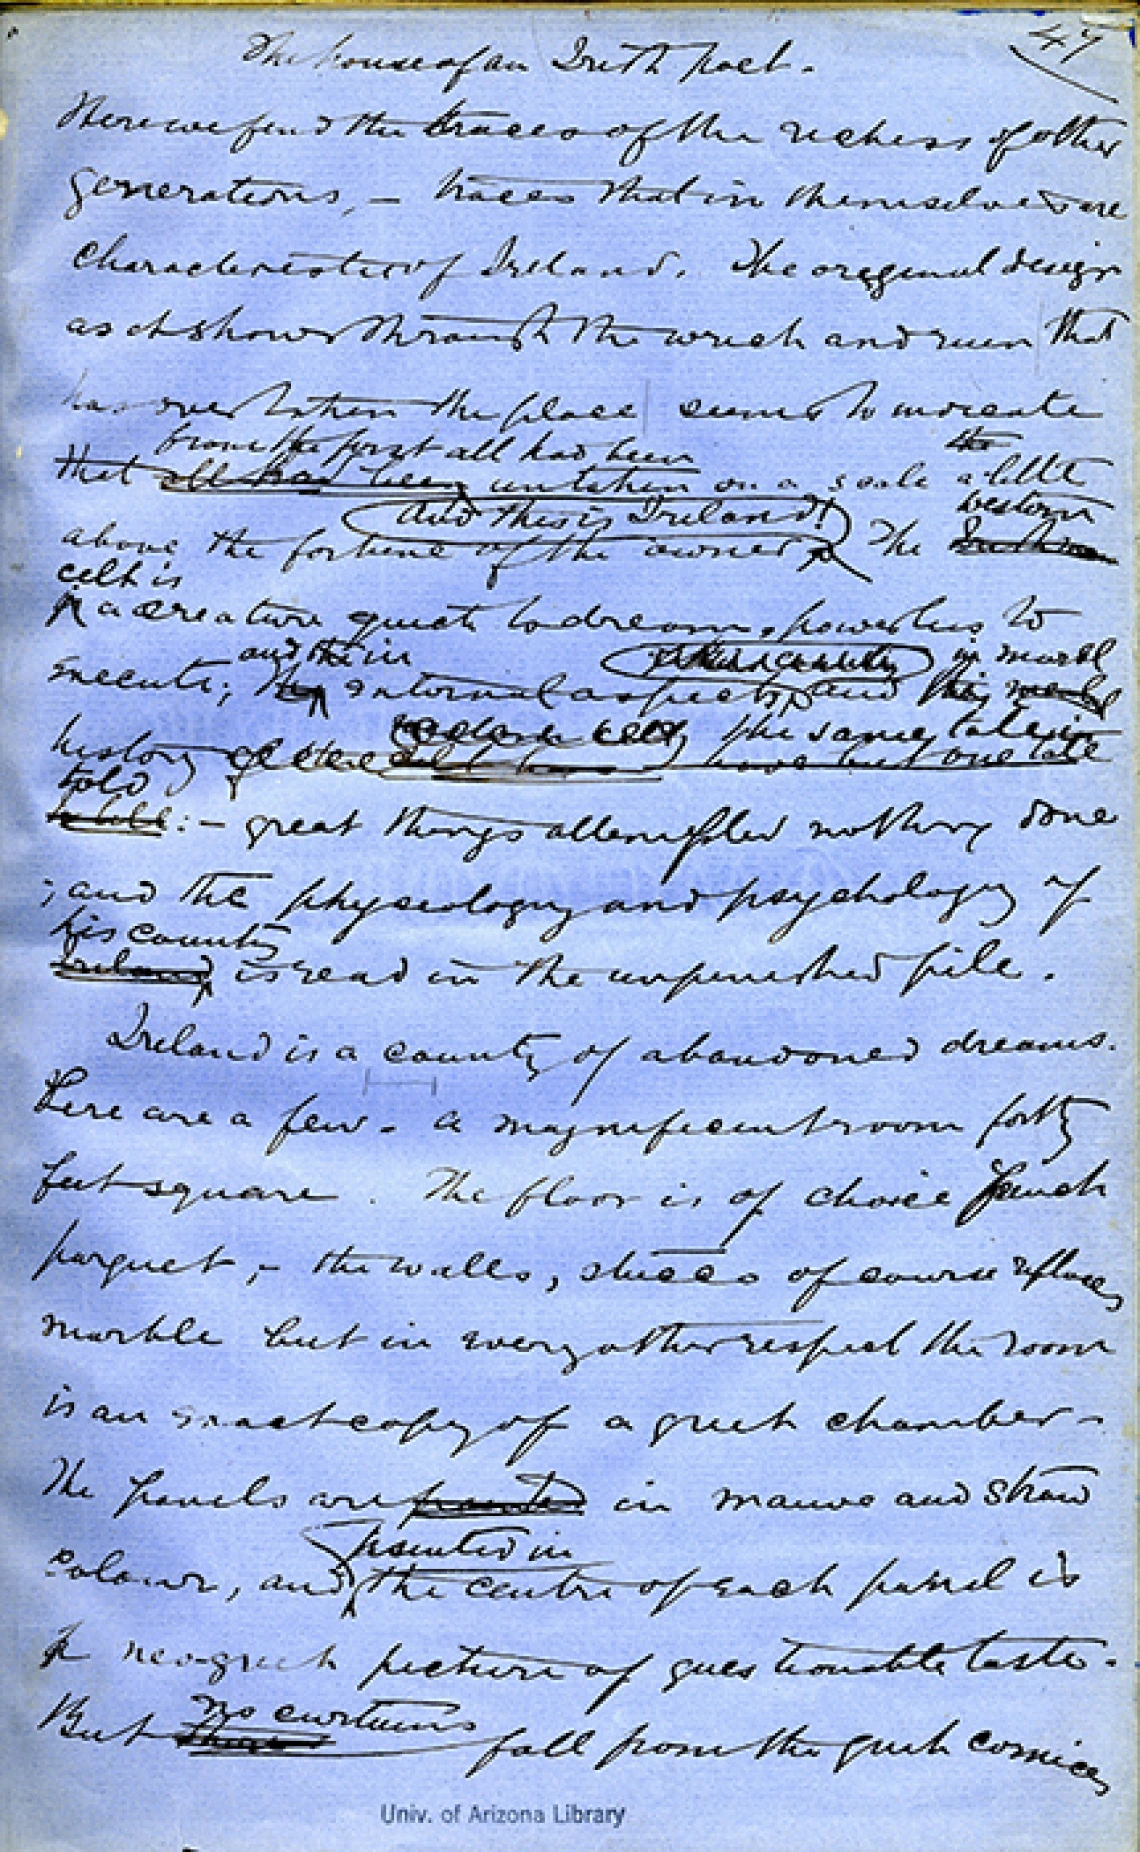 47
The house of an Irish poet.
Here we find the traces of the riches of other
generations, – traces that in themselves are
characteristic of Ireland. The original design
as it shows through the wreck and ruin that
has overtaken the place seems to indicate
from the first all had been the
that all had been untaken on a scale a little
And this is Ireland! western
above the fortune of the owner. The
celt is
a creature quick to dream, powerless to
and the in in
execute; internal aspects and
the same tale in
history
told
to tell :– great things attempted nothing done
; and the physiology and psychology of
his country
Ireland is read in the unfinished pile.
Ireland is a country of abandoned dreams.
Here are a few. a magnificent room forty
feet square. The floor is of choice French
parquet, – the walls, stucco of course replaces
marble but in every other respect the room
is an exact copy of a greek chamber –
The panels are painted in mauve and straw
painted in
colour, and the centre of each panel is
a neo-greek picture of questionable taste.
no curtains
But fall from the greek cornices
Univ. of Arizona Library